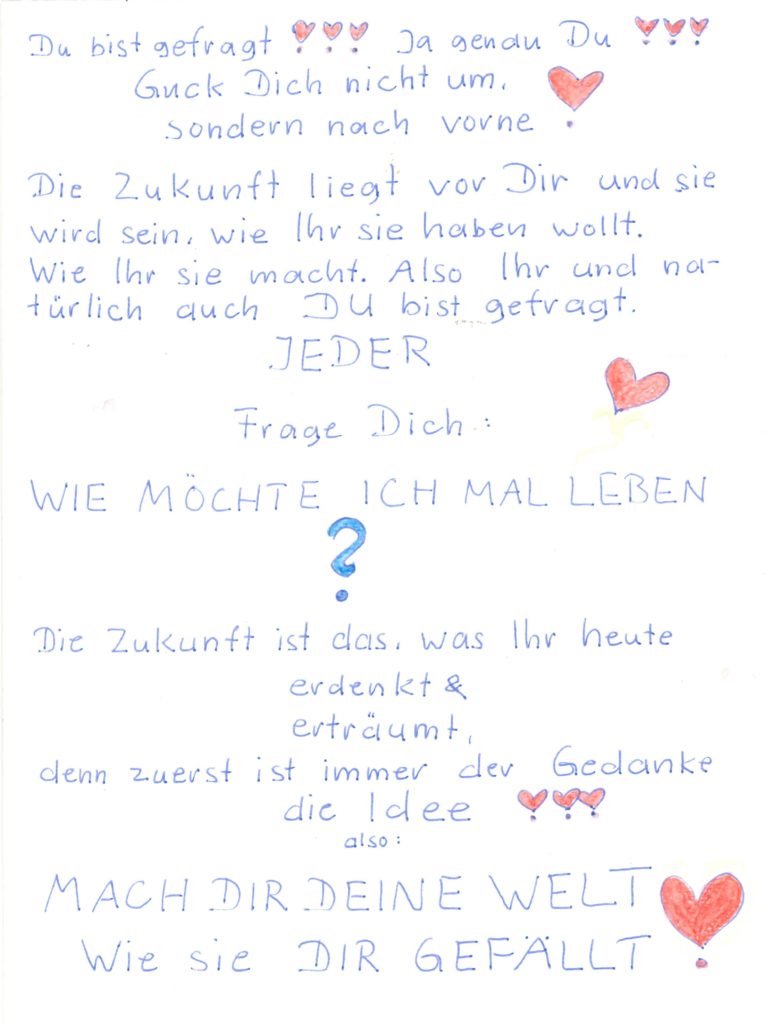 Du bist gefragt ❣❣❣ Ja genau Du ❣❣❣
Guck Dich nicht um,
sondern nach vorne ❣
Die Zukunft liegt vor Dir und sie
wird sein, wie Ihr sie haben wollt.
Wie Ihr sie macht. Also Ihr und na-
türlich auch DU bist gefragt.
JEDER
Frage Dich:
WIE MÖCHTE ICH MAL LEBEN
?
Die Zukunft ist das, was Ihr heute
erdenkt &
erträumt,
denn zuerst ist immer der Gedanke
die Idee ❣❣❣
also:
MACH DIR DEINE WELT
Wie sie DIR GEFÄLLT ❣